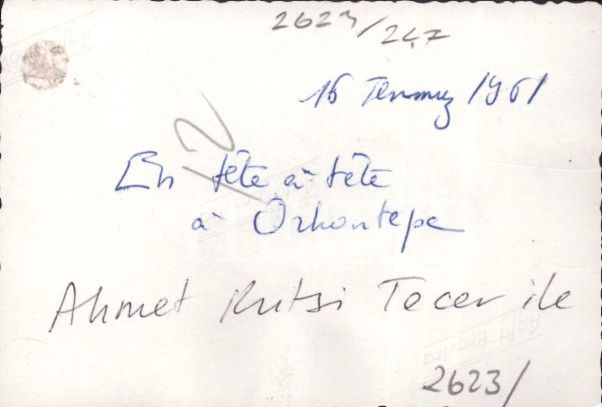 2623/247
16 Temmuz 1961
12
En tête à tête
à Orhontepe
Ahmet Kutsi Tecer ile
2623/